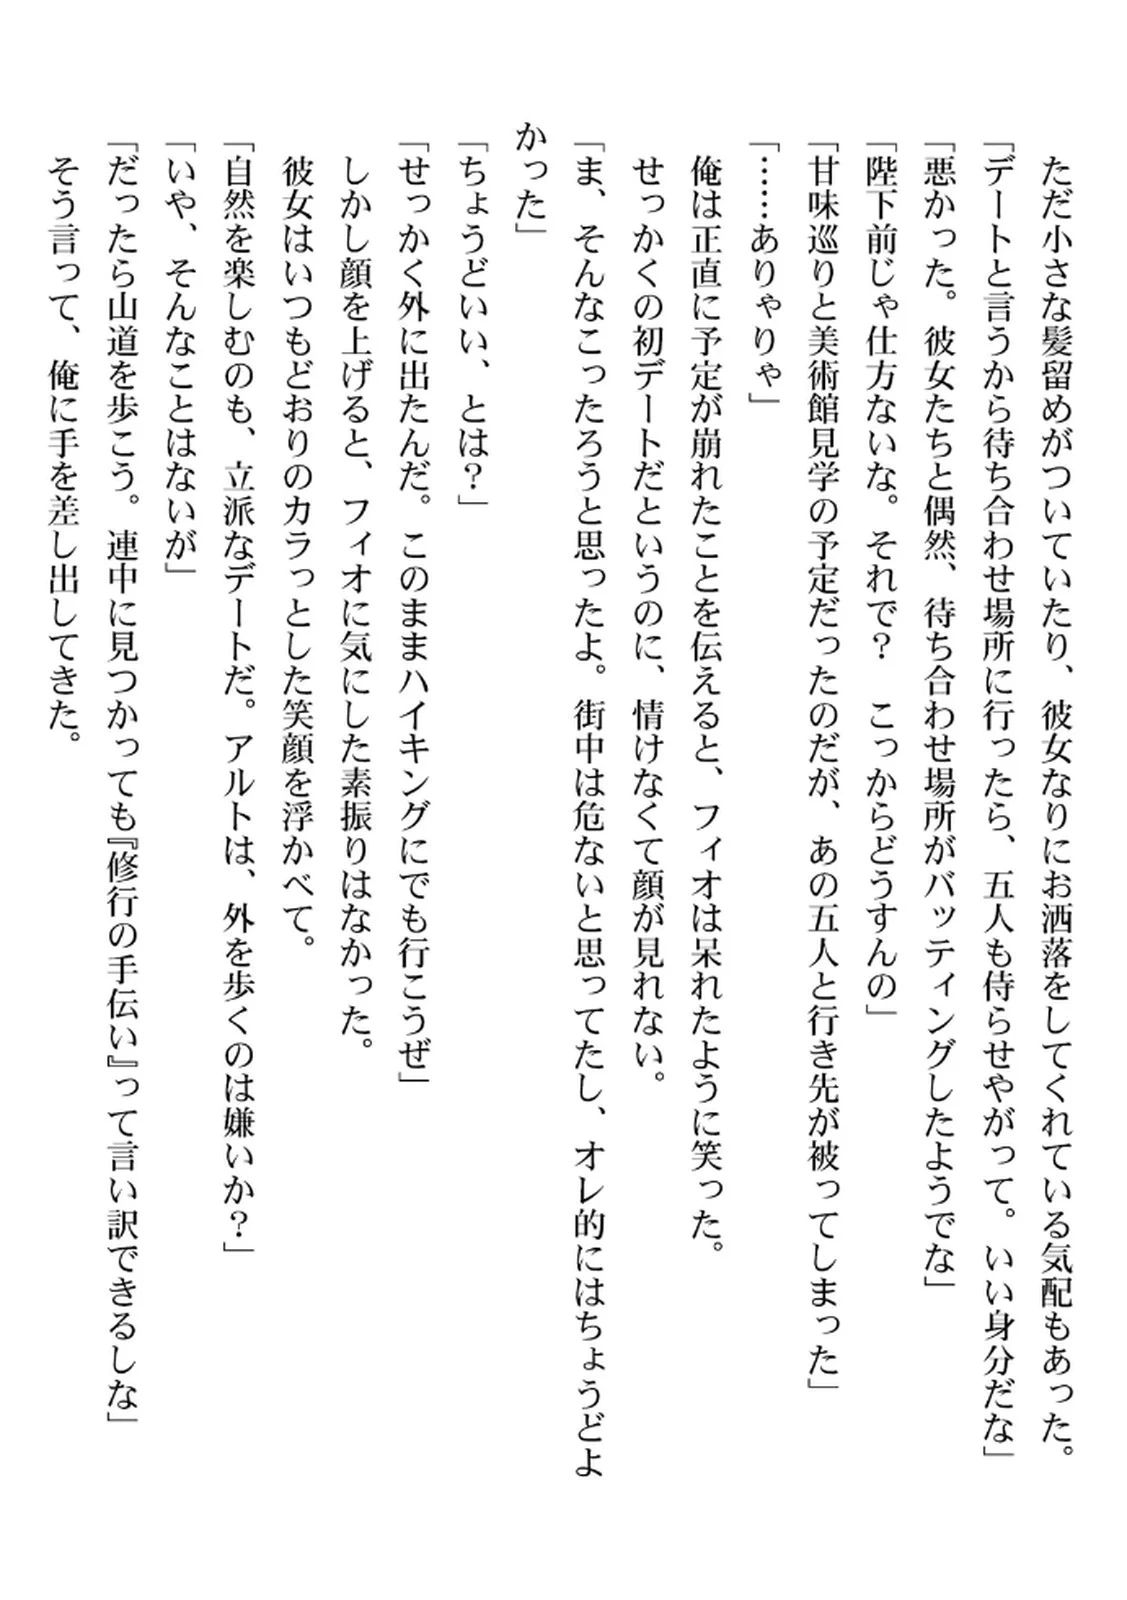 ただ小さな髪留めがついていたり、彼女なりにお洒落をしてくれている気配もあった。
「デートと言うから待ち合わせ場所に行ったら、五人も侍らせやがって。いい身分だな」
「悪かった。彼女たちと偶然、待ち合わせ場所がバッティングしたようでな」
「陛下前じゃ仕方ないな。それで？　こっからどうすんの」
「甘味巡りと美術館見学の予定だったのだが、あの五人と行き先が被ってしまった」
「……ありゃりゃ」
俺は正直に予定が崩れたことを伝えると、フィオは呆れたように笑った。
せっかくの初デートだというのに、情けなくて顔が見れない。
「ま、そんなこったろうと思ったよ。街中は危ないと思ってたし、オレ的にはちょうどよ
かった」
「ちょうどいい、とは？」
「せっかく外に出たんだ。このままハイキングにでも行こうぜ」
しかし顔を上げると、フィオに気にした素振りはなかった。
彼女はいつもどおりのカラっとした笑顔を浮かべて。
「自然を楽しむのも、立派なデートだ。アルトは、外を歩くのは嫌いか？」
「いや、そんなことはないが」
「だったら山道を歩こう。連中に見つかっても『修行の手伝い』って言い訳できるしな」
そう言って、俺に手を差し出してきた。